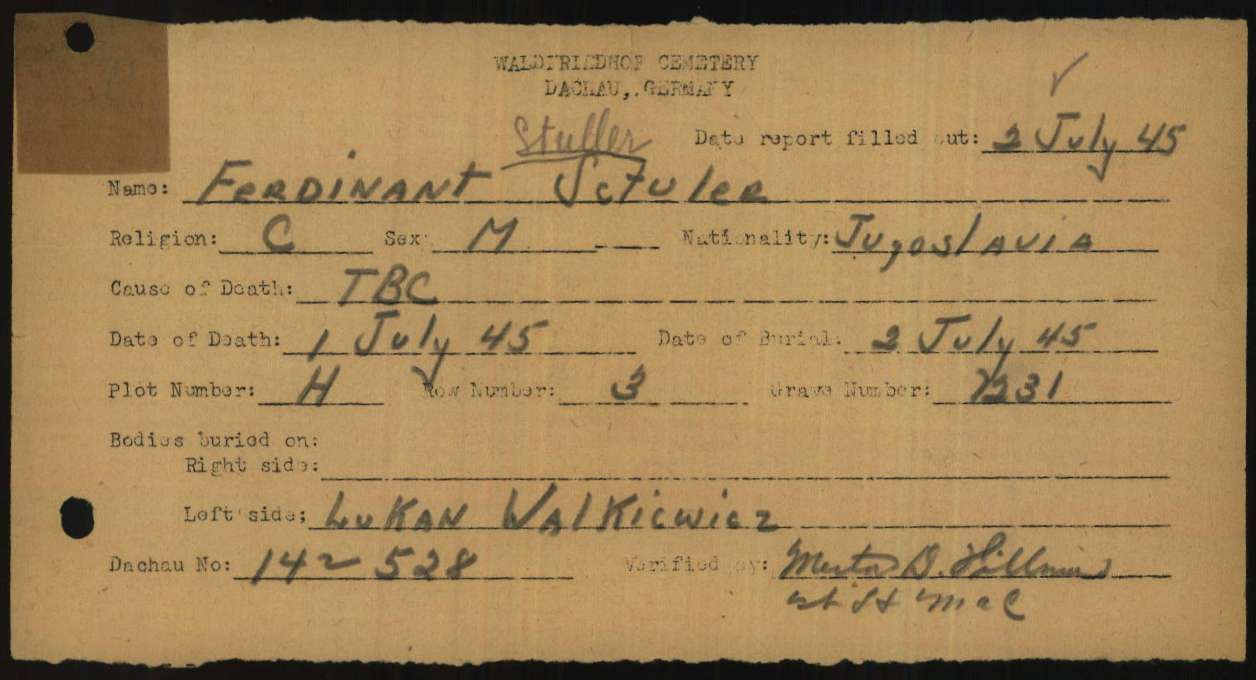 WALDFRIEDHOF CEMETERY
DACHAU, GERMANY
Stuller
Date report filled out: 2 July 45
Name: Ferdinant Sctuler
Religion: C Sex: M Nationality: Jugoslavia
Cause of Death: TBC
Date of Death: 1 July 45 Date of Burial: 2 July 45
Plot Number: H Row Number: 3 Grave Number: 1231
Bodies buried on:
Right side:
Left side; Lukan Walkiewicz
Dachau No: 142 528 Verified by: D.
1st Lt MAC